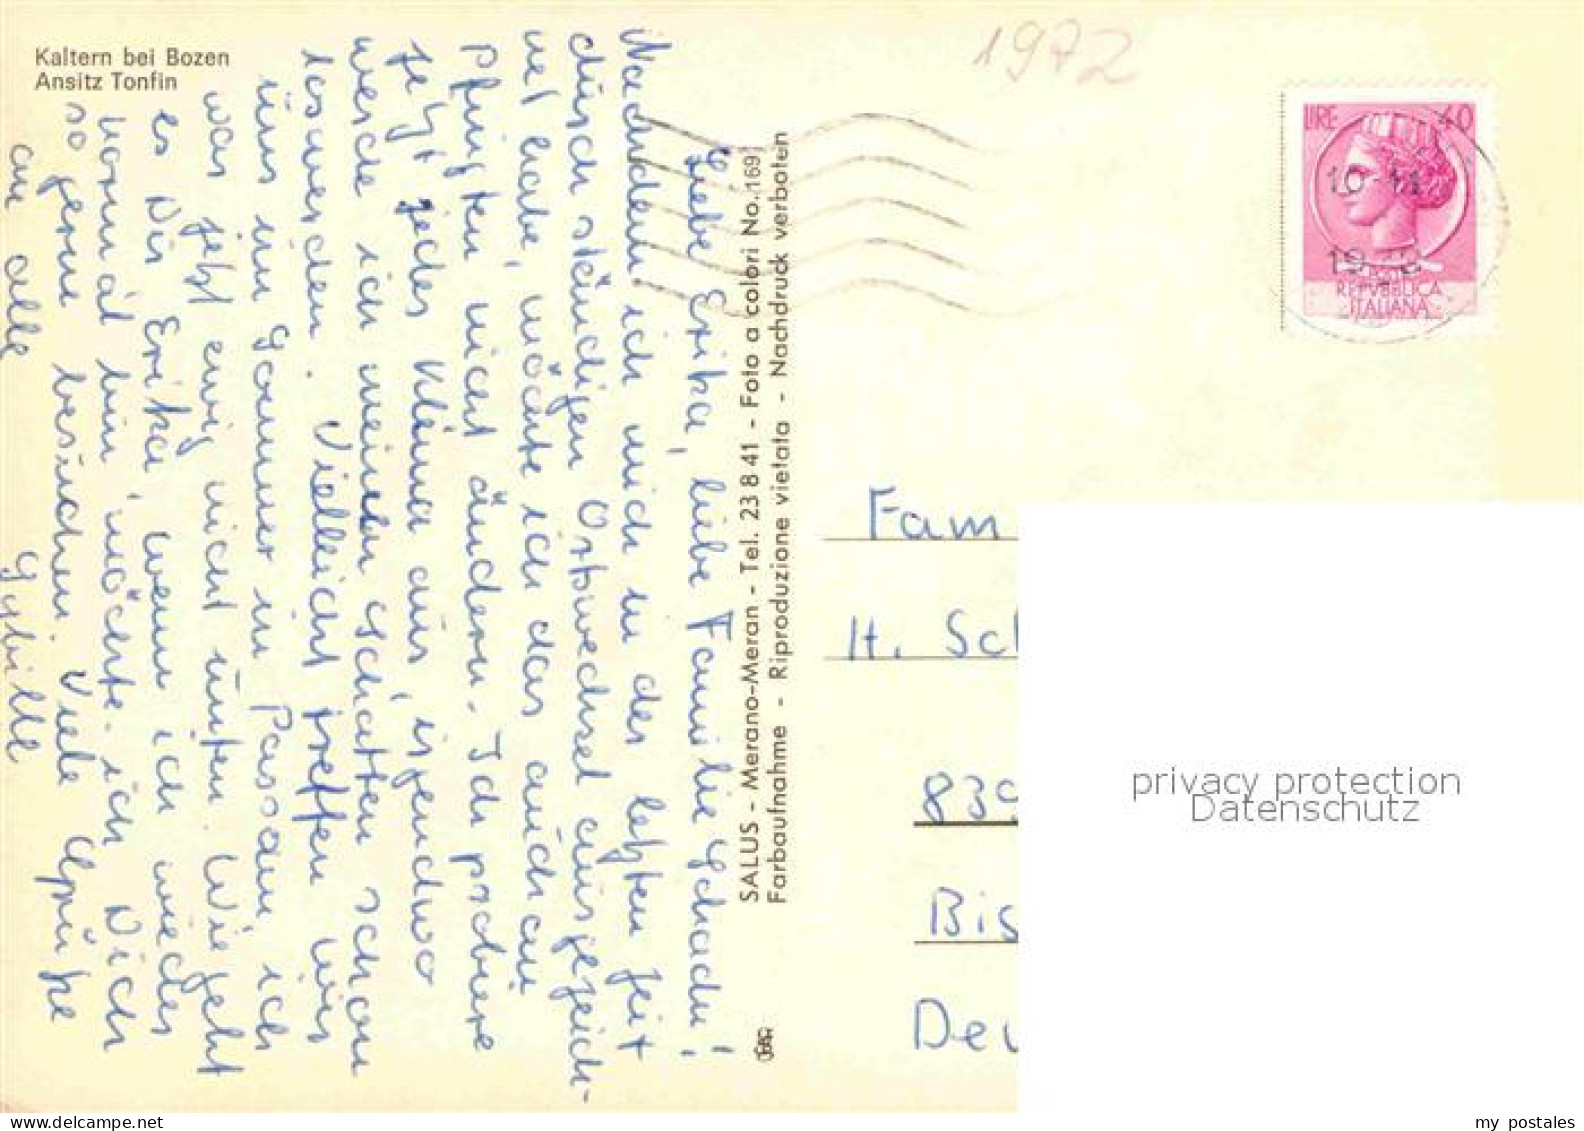 Kaltern bei Bozen
Ansitz Tonfin
1972
LIRE 40
REPVBBLICA
ITALIANA
Liebe Erika, liebe Familie Schach!
Nachdem ich mich in der letzten Zeit
durch ständigen Ortswechsel ausgezeich-
net habe, möchte ich das auch an
Pfingsten nicht ändern. Ich probiere
jetzt jedes Klima aus, irgendwo
werde ich meinen Schatten schon
loswerden. Vielleicht treffen wir
uns im Sommer in Passau, ich
war jetzt ewig nicht unten. Wie geht
es Dir Erika, wenn ich wieder
normal bin, möchte ich Dich
so gerne besuchen. Viele Grüße
an alle Sybille
SALUS - Merano-Meran - Tel. 23 8 41 - Foto a colori No. 169
Farbaufnahme - Riproduzione vietata - Nachdruck verboten
Fam
H. Sch
839
Bis
Deu
privacy protection
Datenschutz
my postales